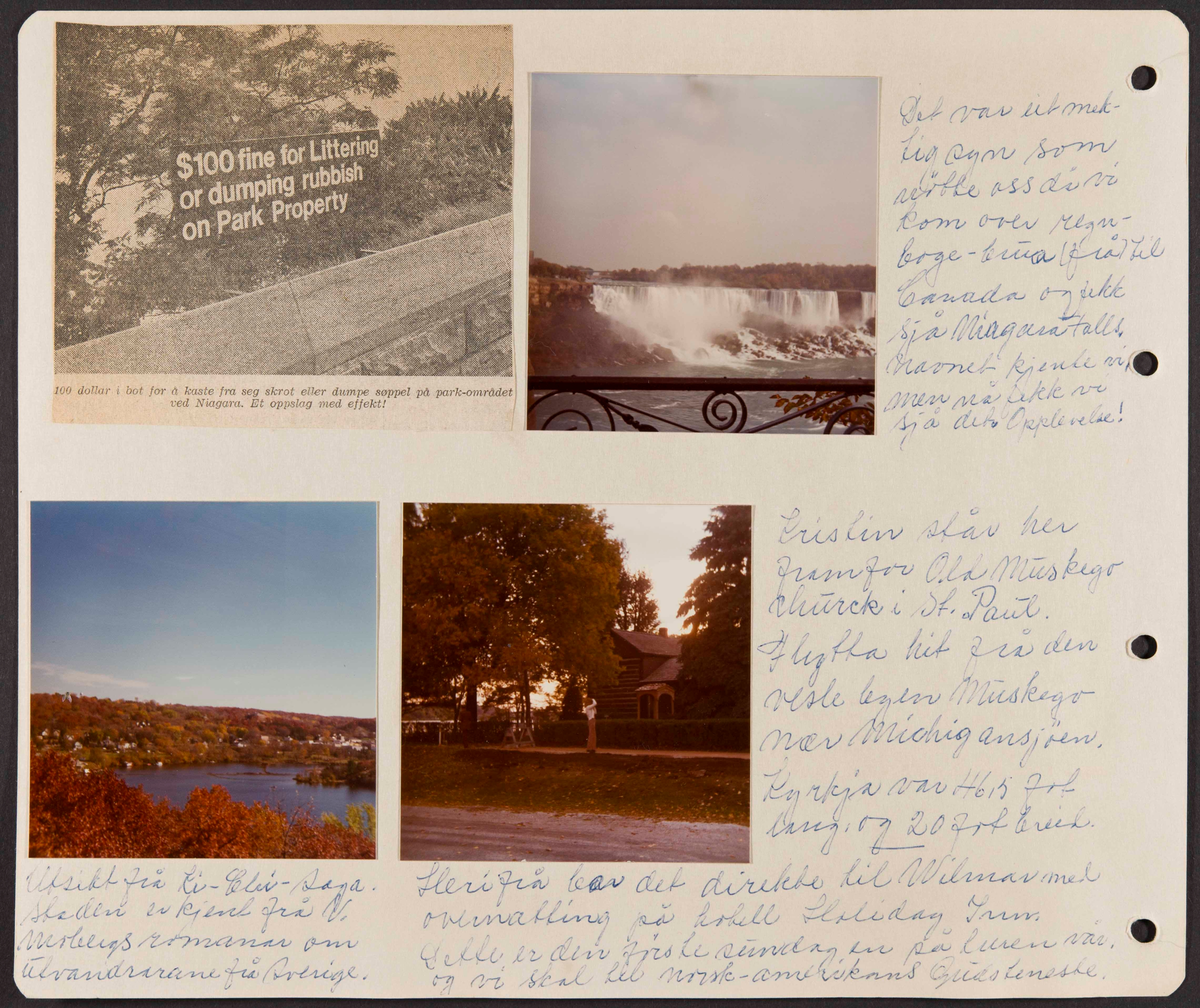 $100 fine for Littering
or dumping rubbish
on Park Property
100 dollar i bot for å kaste fra seg skrot eller dumpe søppel på park-området
ved Niagara. Et oppslag med effekt!
Det var eit mek-
tig syn som
møtte oss då vi
kom over regn-
boge-brua (frå) til
Canada og fekk
sjå Niagara Falls.
Navnet kjente vi,
men nå fekk vi
sjå det. Opplevelse!
Kristin står her
framfor Old Muskego
church i St. Paul.
Flytta hit frå den
vesle byen Muskego
nær Michigansjøen.
Kyrkja var 46,5 fot
lang, og 20 fot breid.
Utsikt frå Ki-Chi-Saga.
Staden er kjent frå V.
Mobergs romanar om
utvandrarane frå Sverige.
Herifrå bar det direkte til Wilmar med
overnatting på hotell Holiday Inn.
Dette er den første sundagen på turen vår,
og vi skal til norsk-amerikansk Gudsteneste.